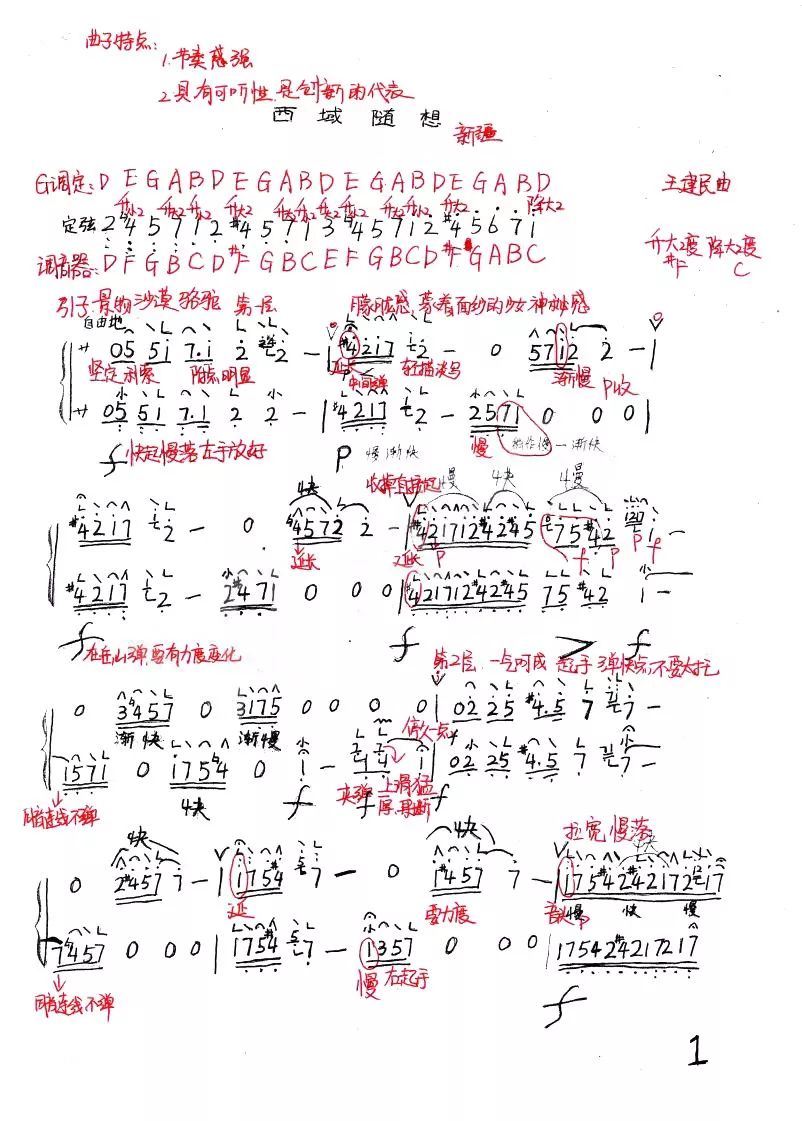 曲子特点:
1.节奏感强
2.具有可听性,是创新的代表
西域随想
新疆
G调定: D E G A B D E G A B D E G A B D E G A B D
王建民曲
升大2度 降大2度
#F C
定弦 2 #4 5 7 1 2 #4 5 7 1 3 #4 5 7 1 2 #4 5 6 7 1
调音器: D F G B C D #F G B C E F G B C D #F G A B C
引子:景物沙漠骆驼 第一层 朦胧感 蒙着面纱的少女神秘感
自由地
05 51 7.1 2 2 - | #4217 2 - 0 5712 2 - |
坚定利索 附点明显 延长 中间弹 轻描淡写 渐慢 P收
05 51 7.1 2 2 | #4217 2 - 2571 0 0 0 |
f 快起慢落左手放好 P 慢渐快 慢 渐快
4快 慢 4快 4慢
#4217 2 - 0 #4572 2 - | #421712#4245 75 #42 1 -
延长 延长 P f P P f
#4217 2 - 2#471 0 0 0 | #421712#4245 75 #42 1 -
f f > f
在岳山弹,要有力度变化 第2层 一气呵成 起手弹快点,不要太拖
0 3457 0 3175 0 0 0 0 | 02 25 #4.5 7 7 -
渐快 渐慢 停久一点
1571 0 1754 0 1 - 4 4 1 | 02 25 #4.5 7 7 -
同音连线不弹 4快 f 夹弹 上滑猛 f
4快 4快 拉宽慢落
4快
0 2#457 7 - | 1754 7 - 0 1#457 7 - | 17542#42172 17
延 要力度 慢 快 慢
7#457 0 0 0 | 1754 7 - 1357 0 0 0 | 17542#4217217
同音连线不弹 慢 右起手 f
1